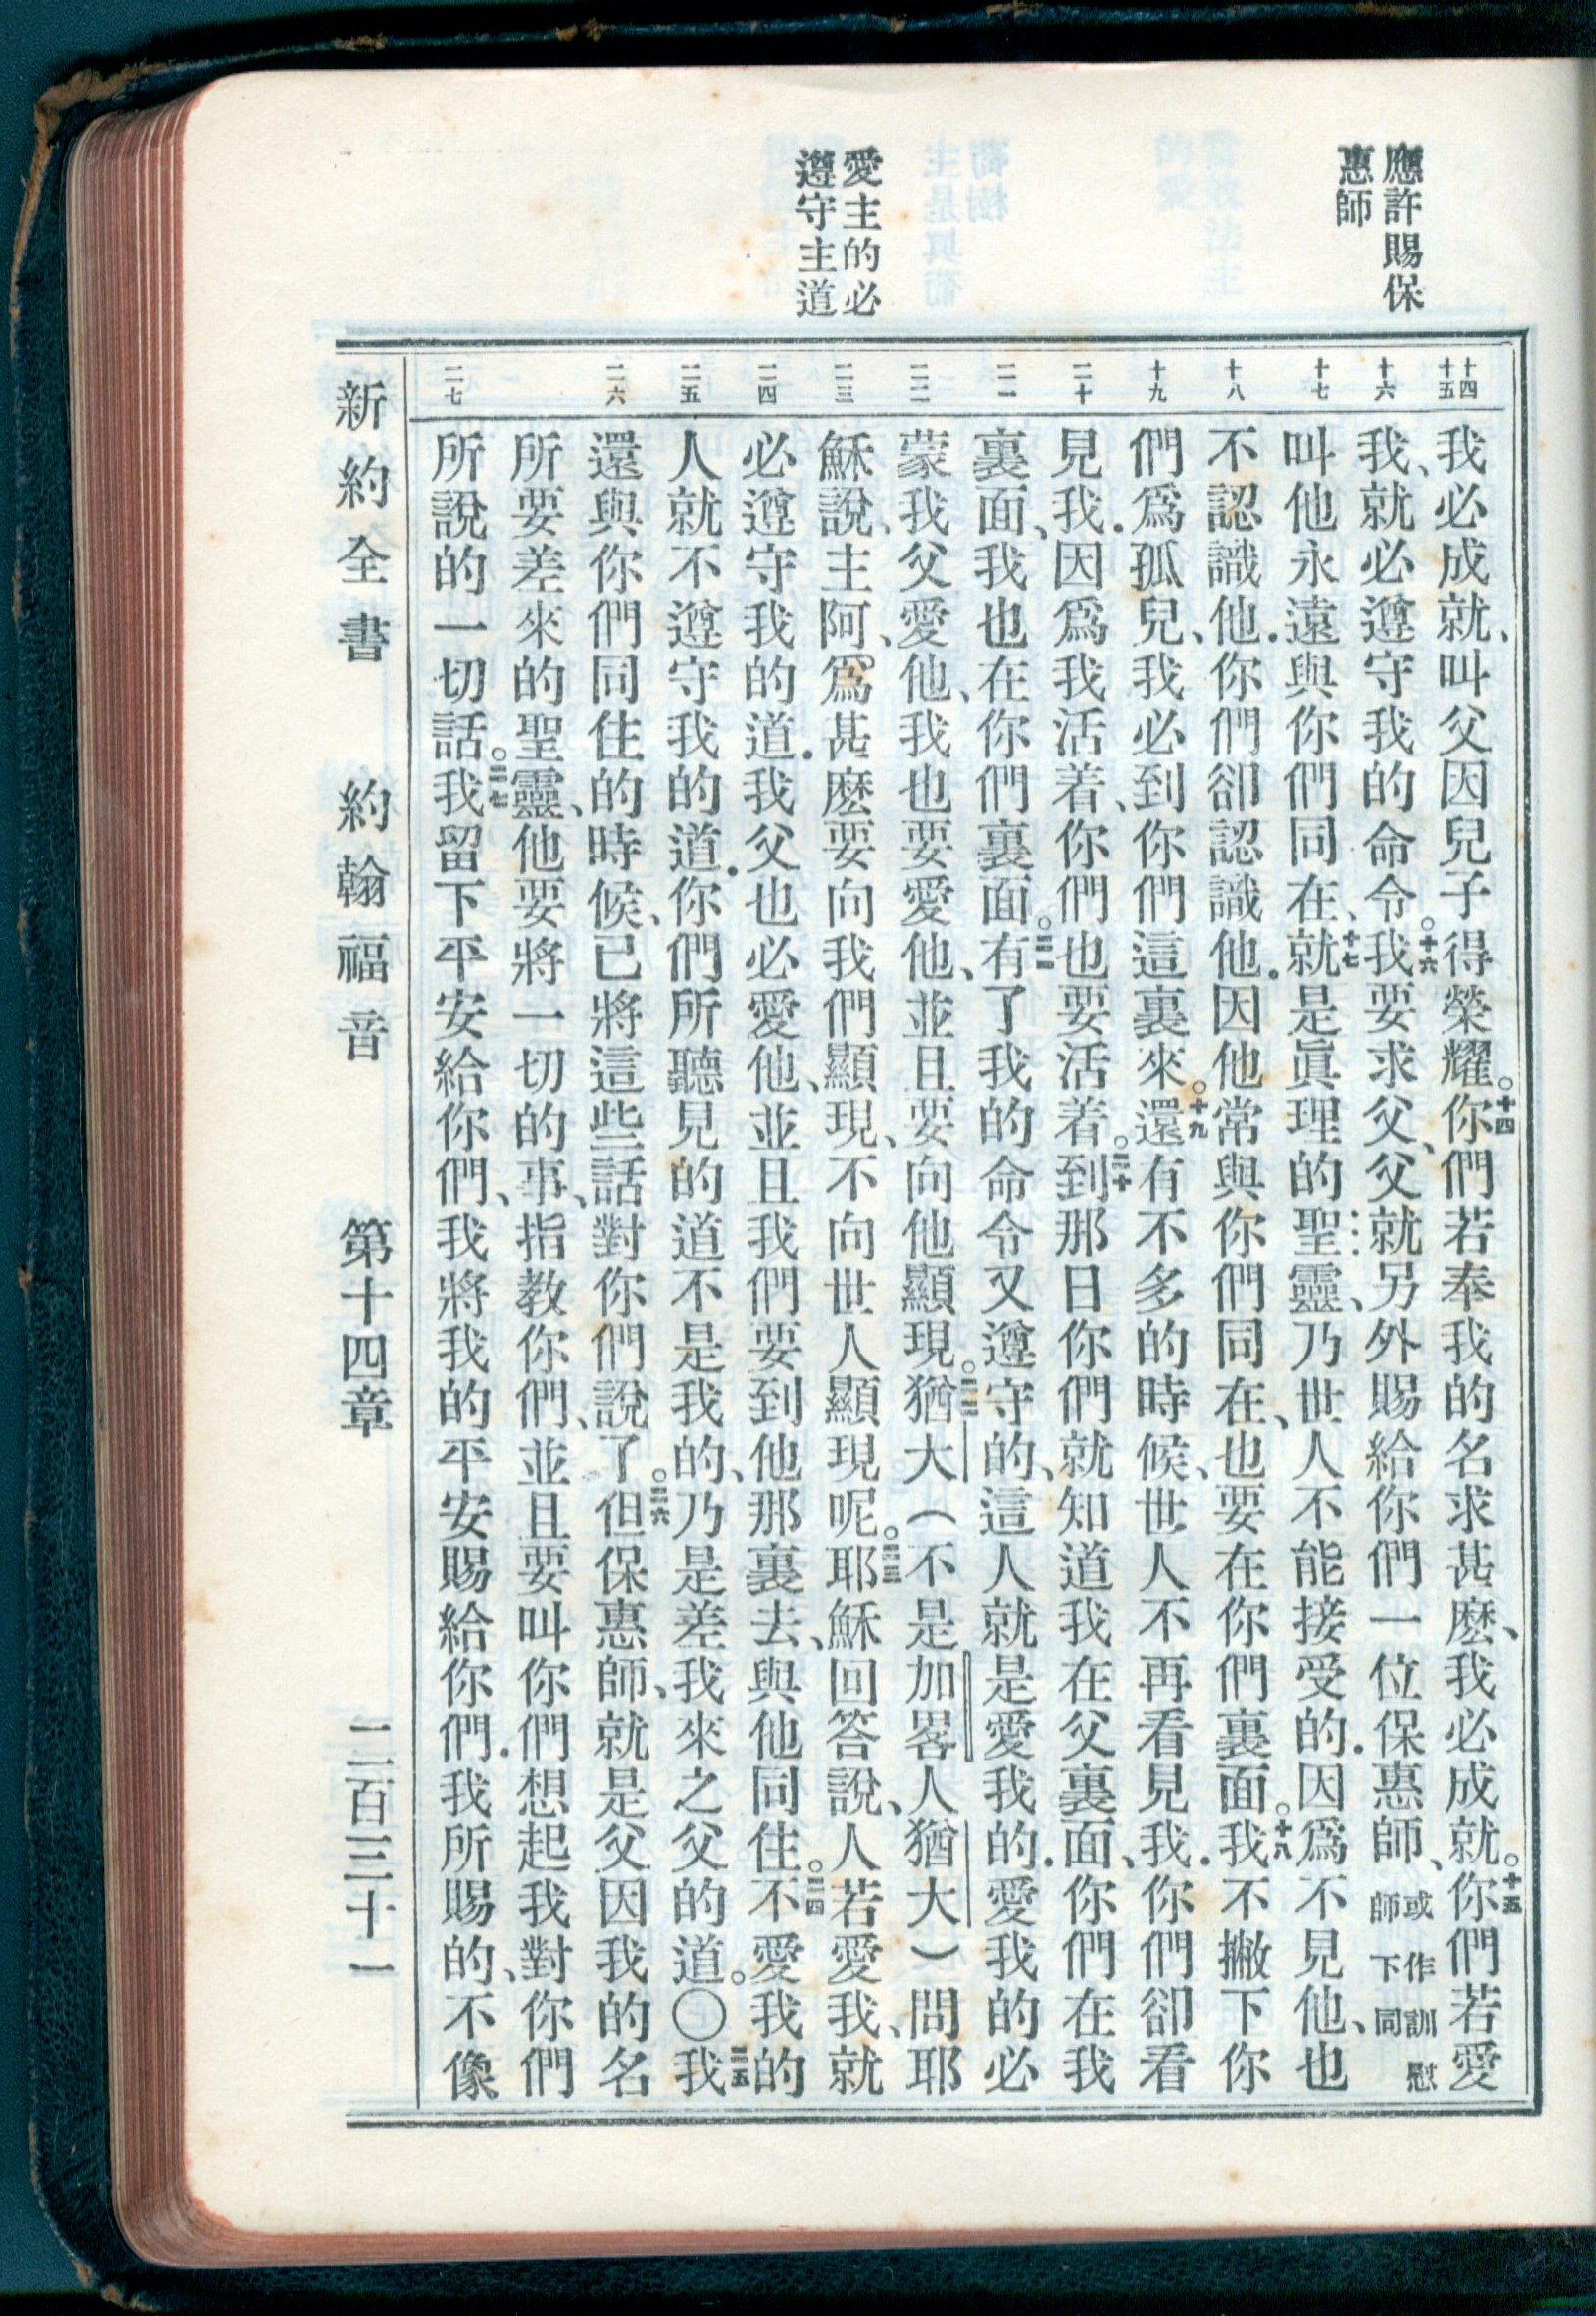 應許賜保
惠師
愛主的必
遵守主道
十四
十五
十六
十七
十八
十九
二十
二一
二二
二三
二四
二五
二六
二七
我必成就、叫父因兒子得榮耀。十四你們若奉我的名求甚麽、我必成就。十五你們若愛
我、就必遵守我的命令。十六我要求父、父就另外賜給你們一位保惠師、或作訓慰師下同
叫他永遠與你們同在、十七就是眞理的聖靈、乃世人不能接受的．因爲不見他、也
不認識他．你們卻認識他．因他常與你們同在、也要在你們裏面。十八我不撇下你
們爲孤兒、我必到你們這裏來。十九還有不多的時候、世人不再看見我．你們卻看
見我．因爲我活着、你們也要活着。二十到那日你們就知道我在父裏面、你們在我
裏面、我也在你們裏面。二一有了我的命令又遵守的、這人就是愛我的．愛我的必
蒙我父愛他、我也要愛他、並且要向他顯現。二二猶大（不是加畧人猶大）問耶
穌說、主阿、爲甚麽要向我們顯現、不向世人顯現呢。二三耶穌回答說、人若愛我、就
必遵守我的道．我父也必愛他、並且我們要到他那裏去、與他同住。二四不愛我的
人就不遵守我的道．你們所聽見的道不是我的、乃是差我來之父的道。〇二五我
還與你們同住的時候、已將這些話對你們說了。二六但保惠師、就是父因我的名
所要差來的聖靈、他要將一切的事、指教你們、並且要叫你們想起我對你們
所說的一切話。二七我留下平安給你們、我將我的平安賜給你們．我所賜的、不像
新約全書 約翰福音 第十四章 二百三十一